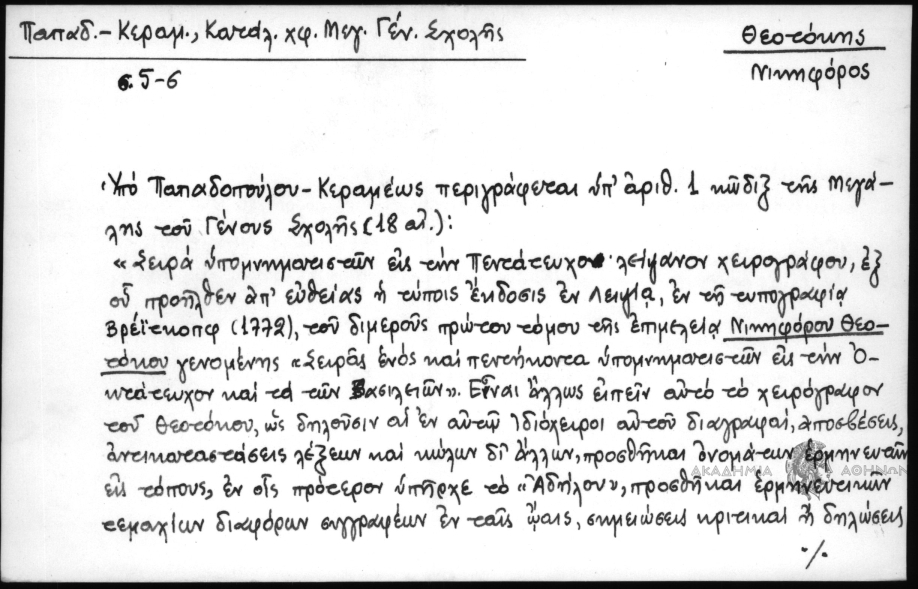 Παπαδ.-Κεραμ., Καταλ. χφ. Μεγ. Γέν. Σχολῆς
Θεοτόκης
Νικηφόρος
σ. 5-6
Ὑπό Παπαδοπούλου-Κεραμέως περιγράφεται ὑπ' ἀριθ. 1 κῶδιξ τῆς Μεγά-
λης τοῦ Γένους Σχολῆς (18 αἰ.):
«Σειρά ὑπομνηματιστῶν εἰς τήν Πεντάτευχον· λείψανον χειρογράφου, ἐξ
οὗ προῆλθεν ἀπ' εὐθείας ἡ τύποις ἔκδοσις ἐν Λειψίᾳ, ἐν τῇ τυπογραφίᾳ
Βρέϊτκοπφ (1772), τοῦ διμεροῦς πρώτου τόμου τῆς ἐπιμελείᾳ Νικηφόρου Θεο-
τόκου γενομένης «Σειρᾶς ἑνός καί πεντήκοντα ὑπομνηματιστῶν εἰς τήν Ὀ-
κτάτευχον καί τά τῶν Βασιλειῶν». Εἶναι ἄλλως εἰπεῖν αὐτό τό χειρόγραφον
τοῦ Θεοτόκου, ὡς δηλοῦσιν αἱ ἐν αὐτῷ ἰδιόχειροι αὐτοῦ διαγραφαί, ἀποσβέσεις,
ἀντικαταστάσεις λέξεων καί κώλων δι' ἄλλων, προσθῆκαι ὀνομάτων ἑρμηνευτῶν
ΑΚΑΔΗΜΙΑ ΑΘΗΝΩΝ
εἰς τόπους, ἐν οἷς πρότερον ὑπῆρχε τό «Ἀδήλου», προσθῆκαι ἑρμηνευτικῶν
τεμαχίων διαφόρων συγγραφέων ἐν ταῖς ᾤαις, σημειώσεις κριτικαί ἤ δηλώσεις
./.